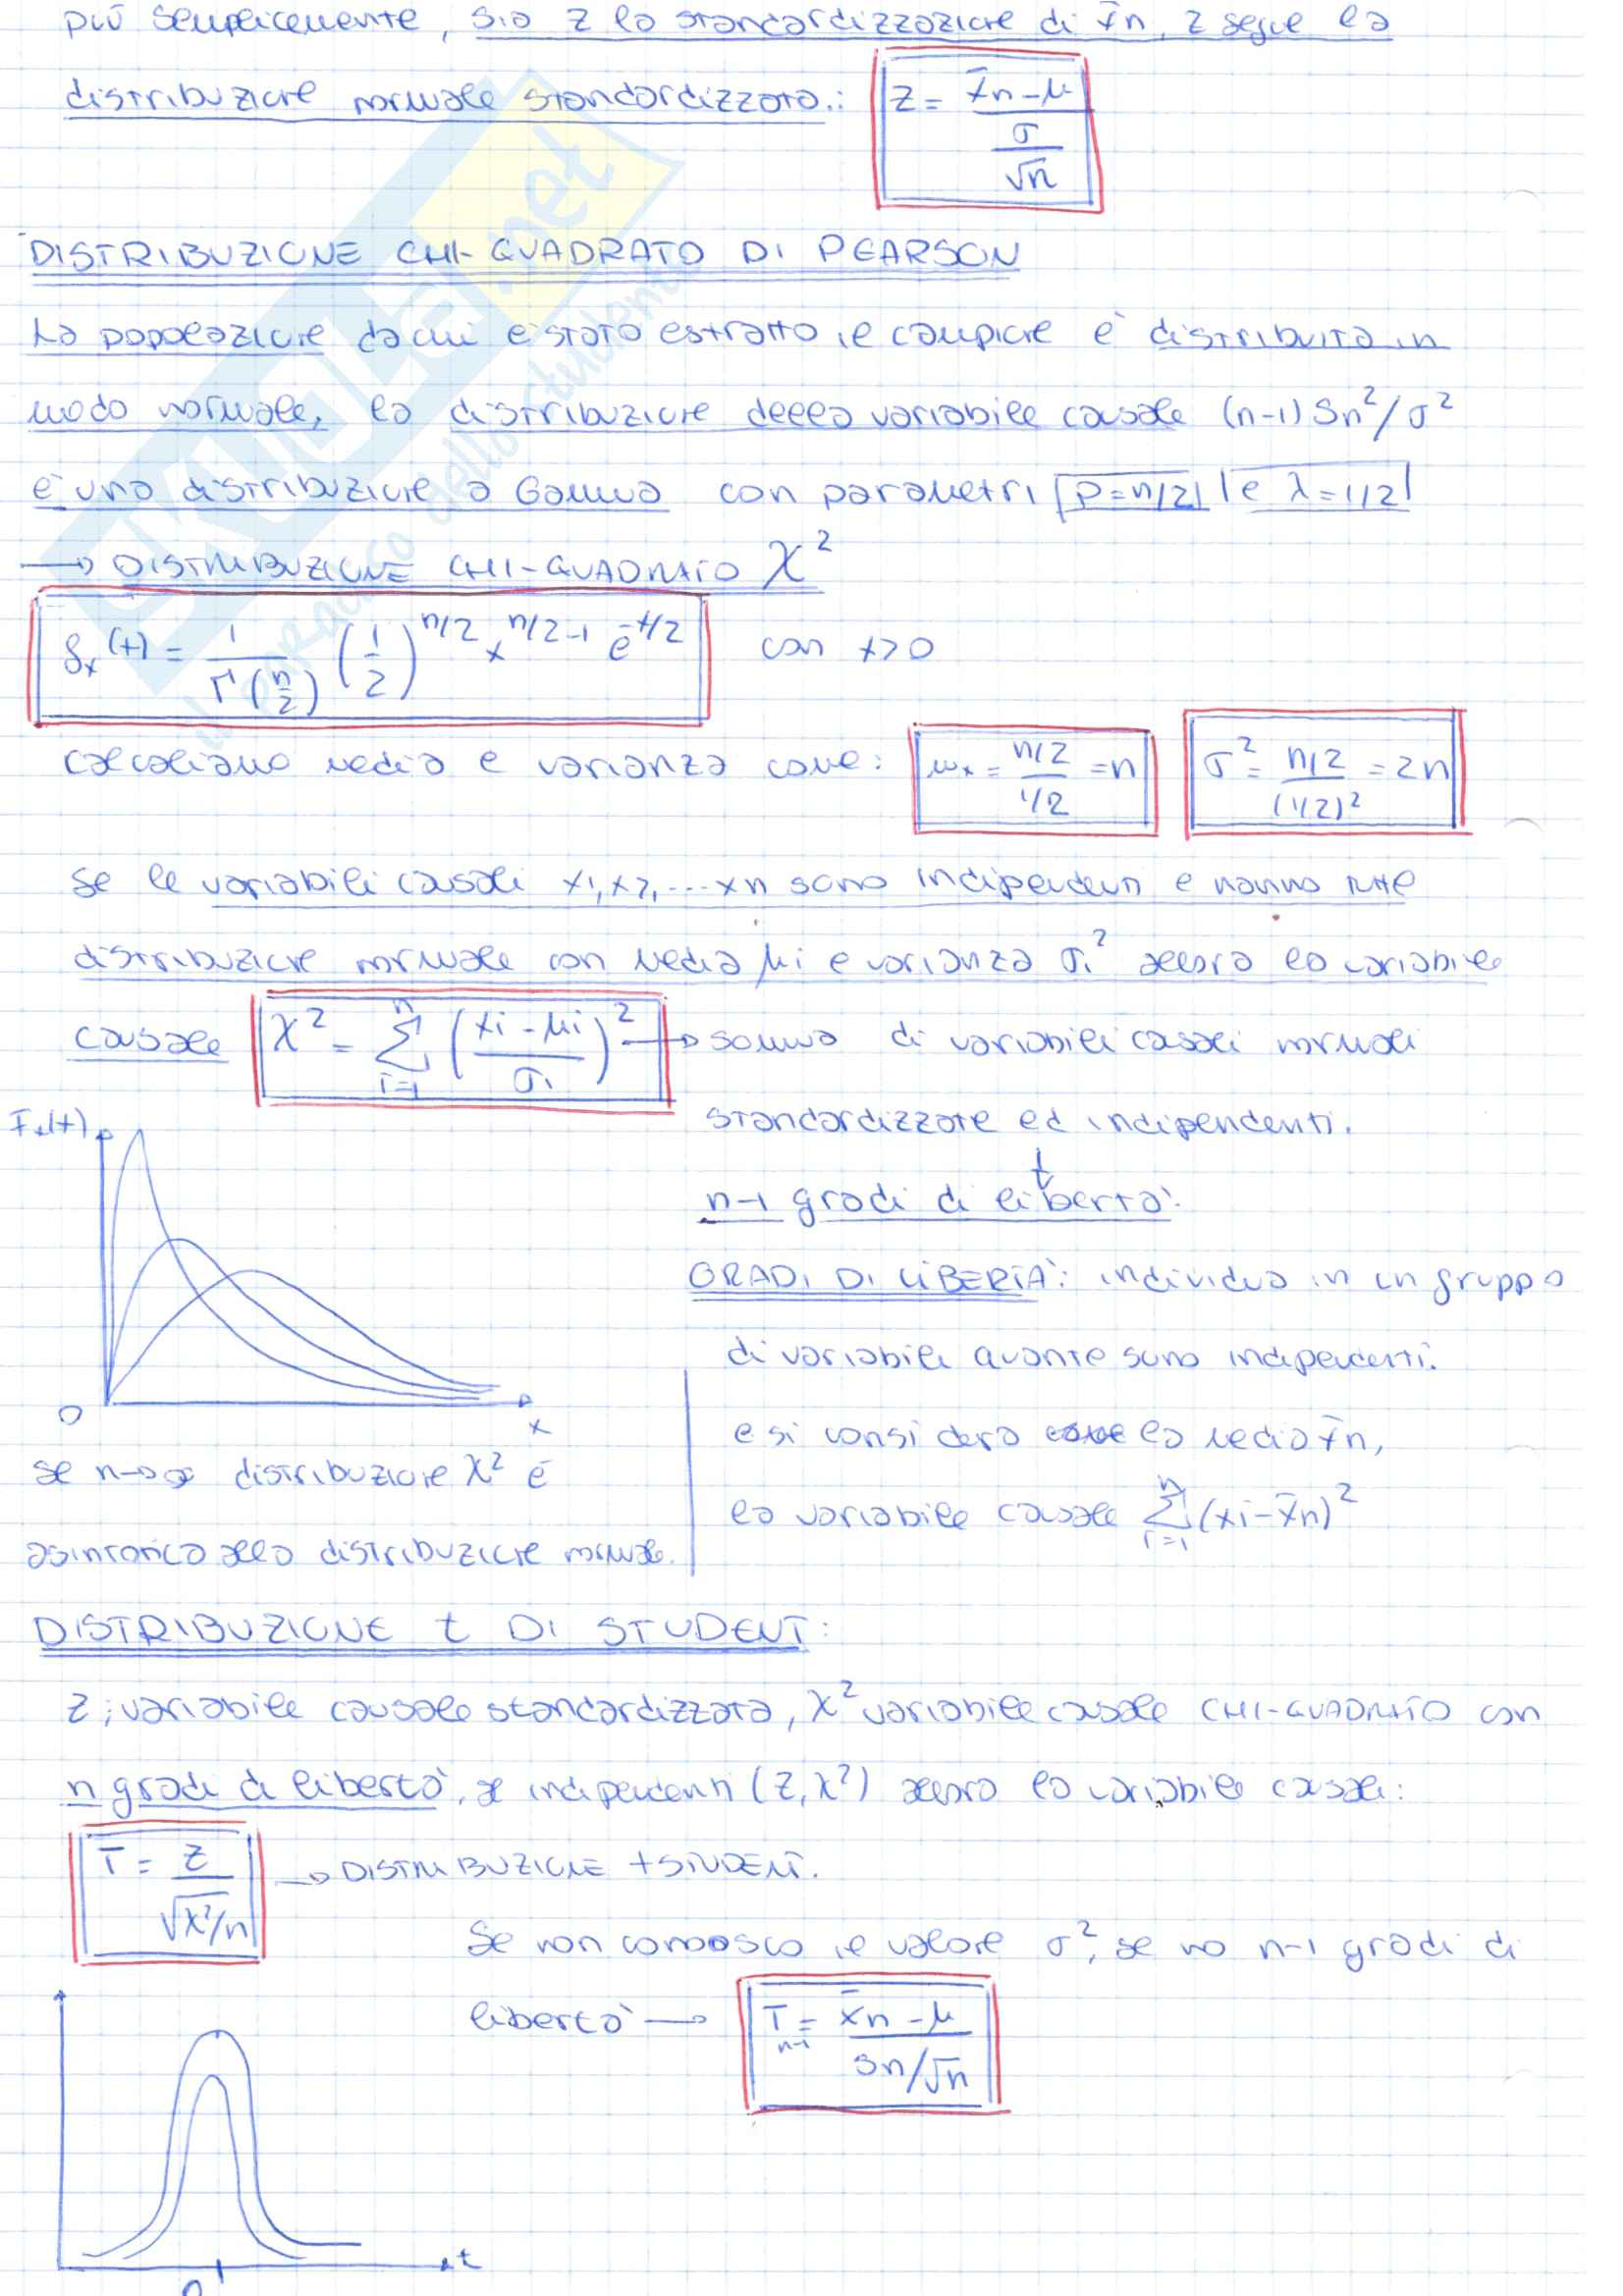 più semplicemente, sia z la standardizzazione di x̄n, z segue la
distribuzione normale standardizzata.: z = (x̄n - μ) / (σ/√n)
DISTRIBUZIONE CHI-QUADRATO DI PEARSON
La popolazione da cui è stato estratto il campione è distribuita in
modo normale, la distribuzione della variabile casuale (n-1) Sn²/σ²
è una distribuzione a Gamma con parametri p=n/2 e λ=1/2
→ DISTRIBUZIONE CHI-QUADRATO χ²
fx(x) = 1/Γ(n/2) (1/2)^n/2 x^n/2-1 e^-x/2 con x>0
calcoliamo media e varianza come: μx = (n/2)/(1/2) = n σ² = (n/2)/(1/2)² = 2n
se le variabili casuali x1, x2, ... xn sono indipendenti e hanno tutte
distribuzione normale con media μi e varianza σi² allora la variabile
casuale χ² = Σ i=1 n ((xi - μi)/σi)² → somma di variabili casali normali
standardizzate ed indipendenti.
Fx(x)
n-1 gradi di libertà:
GRADI DI LIBERTÀ: individua in un gruppo
di variabili quante sono indipendenti.
0 x
e si considera la media x̄n,
la variabile casuale Σ i=1 n (xi - x̄n)²
se n→∞ distribuzione χ² è
asintotica alla distribuzione normale.
DISTRIBUZIONE t DI STUDENT:
z; variabile casuale standardizzata, χ² variabile casuale CHI-QUADRATO con
n gradi di libertà, se indipendenti (z, χ²) allora la variabile casuale:
T = z/√(χ²/n) → DISTRIBUZIONE t STUDENT.
Se non conoosco il valore σ², se ho n-1 gradi di
libertà → T n-1 = (x̄n - μ) / (Sn/√n)
t
0
SKUOLA.net